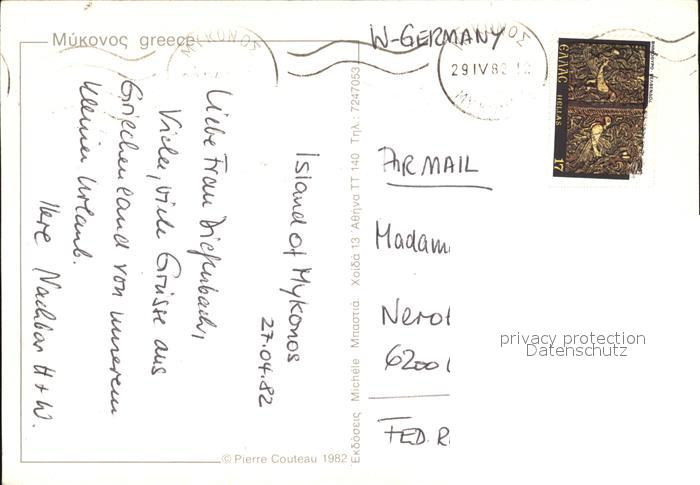 Μύκονος greece
ΜΥΚΟΝΟΣ
Island of Mykonos
27.04.82
Liebe Frau Diefenbach,
Viele, viele Grüsse aus
Griechenland von unserem
kleinen Urlaub.
Ihre Nachbarn H + W.
© Pierre Couteau 1982
Εκδόσεις Michèle Μπαστιά Χοϊδά 13 Αθήνα ΤΤ 140 Τηλ.: 7247053
W-GERMANY
29 IV 82 12
ΕΛΛΑΣ HELLAS
17
AIRMAIL
Madam
Nerot
6200
FED. R
privacy protection
Datenschutz